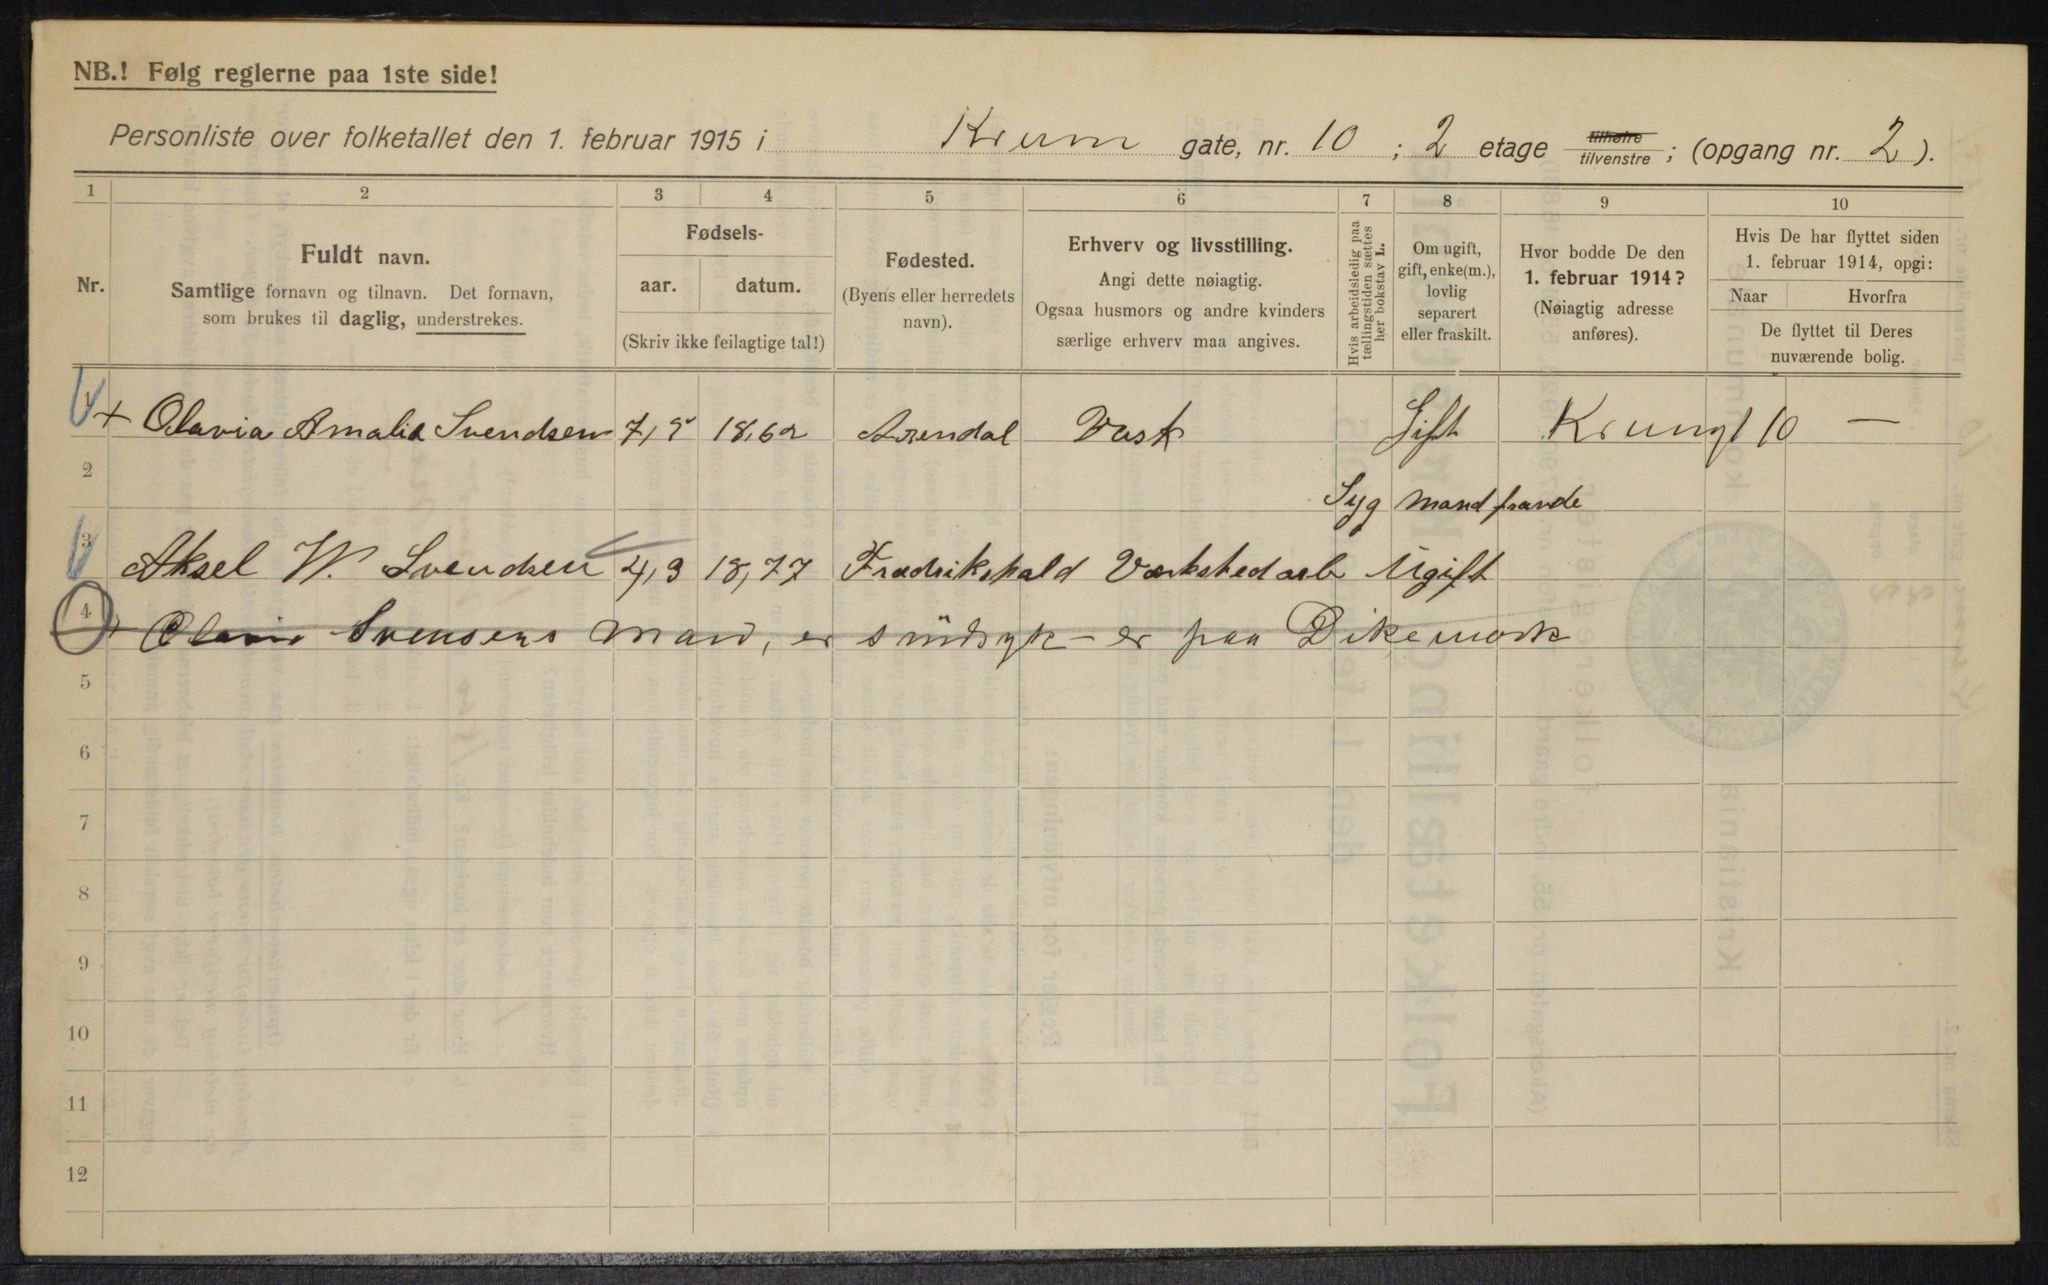 NB.! Følg reglerne paa 1ste side!
Personliste over folketallet den 1. februar 1915 i Krum gate, nr. 10 ; 2 etage tilhøire tilvenstre ; (opgang nr. 2 ).
1 2 3 4 5 6 7 8 9 10
Nr.
Fuldt navn.
Samtlige fornavn og tilnavn. Det fornavn,
som brukes til daglig, understrekes.
Fødsels-
aar. datum.
(Skriv ikke feilagtige tal!)
Fødested.
(Byens eller herredets
navn).
Erhverv og livsstilling.
Angi dette nøiagtig.
Ogsaa husmors og andre kvinders
særlige erhverv maa angives.
Hvis arbeidsledig paa
tællingstiden sættes
her bokstav L.
Om ugift,
gift, enke(m.),
lovlig
separert
eller fraskilt.
Hvor bodde De den
1. februar 1914?
(Nøiagtig adresse
anføres).
Hvis De har flyttet siden
1. februar 1914, opgi:
Naar Hvorfra
De flyttet til Deres
nuværende bolig.
1 + Olavia Amalia Svendsen 7,9 18,62 Arendal Vask Gift Krumgt 10 —
2
Syg mand
3 Aksel W. Svendsen 4,3 18,77 Fredrikshald Værkstedarb Ugift
4 + Olavia Svensens mand, er sindsyk – er paa Dikemark
5
6
7
8
9
10
11
12